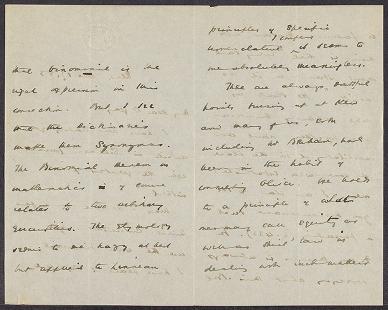 that binomial is the
usual expression in this
connection. But I see
that the Dictionaries
make them Synonyms.
The Binomial theorem in
mathematics is of course
related to two arbitrary
quantities. The etymology
seems to me hazy at best
but applied to Linnean
principles of Specific
nomenclature it seems to
me absolutely meaningless.
There are always doubtful
points turning up at Kew
and many of us, both
including Mr
been in the habit of
consulting
to a principle of
may call equity as
well as strict law in
dealing with such matters